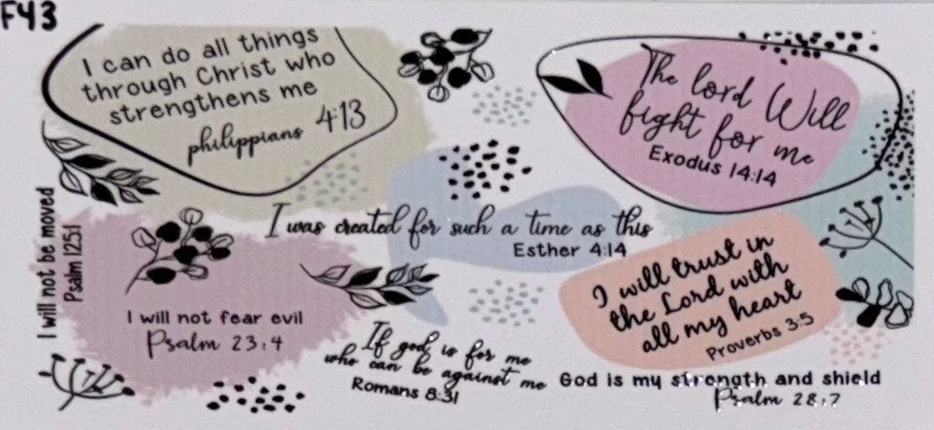 F43
I can do all things
through Christ who
strengthens me
philippians 4:13
The lord Will
fight for me
Exodus 14:14
I was created for such a time as this
Esther 4:14
I will not be moved
Psalm 125:1
I will trust in
the Lord with
all my heart
Proverbs 3:5
I will not fear evil
Psalm 23:4
If god is for me
who can be against me
Romans 8:31
God is my strength and shield
Psalm 28:7